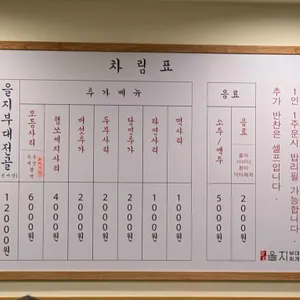 차림표
을지부대전골
12000원
추가메뉴
모듬사리
6000원
햄소세지사리
4000원
버섯추가
2000원
두부사리
2000원
당면추가
2000원
라면사리
1000원
떡사리
1000원
음료
소주/맥주
5000원
음료
콜라
사이다
환타
2000원
1인 1주문시 밥리필 가능합니다
추가 반찬은 셀프입니다.
을지
부대
찌개